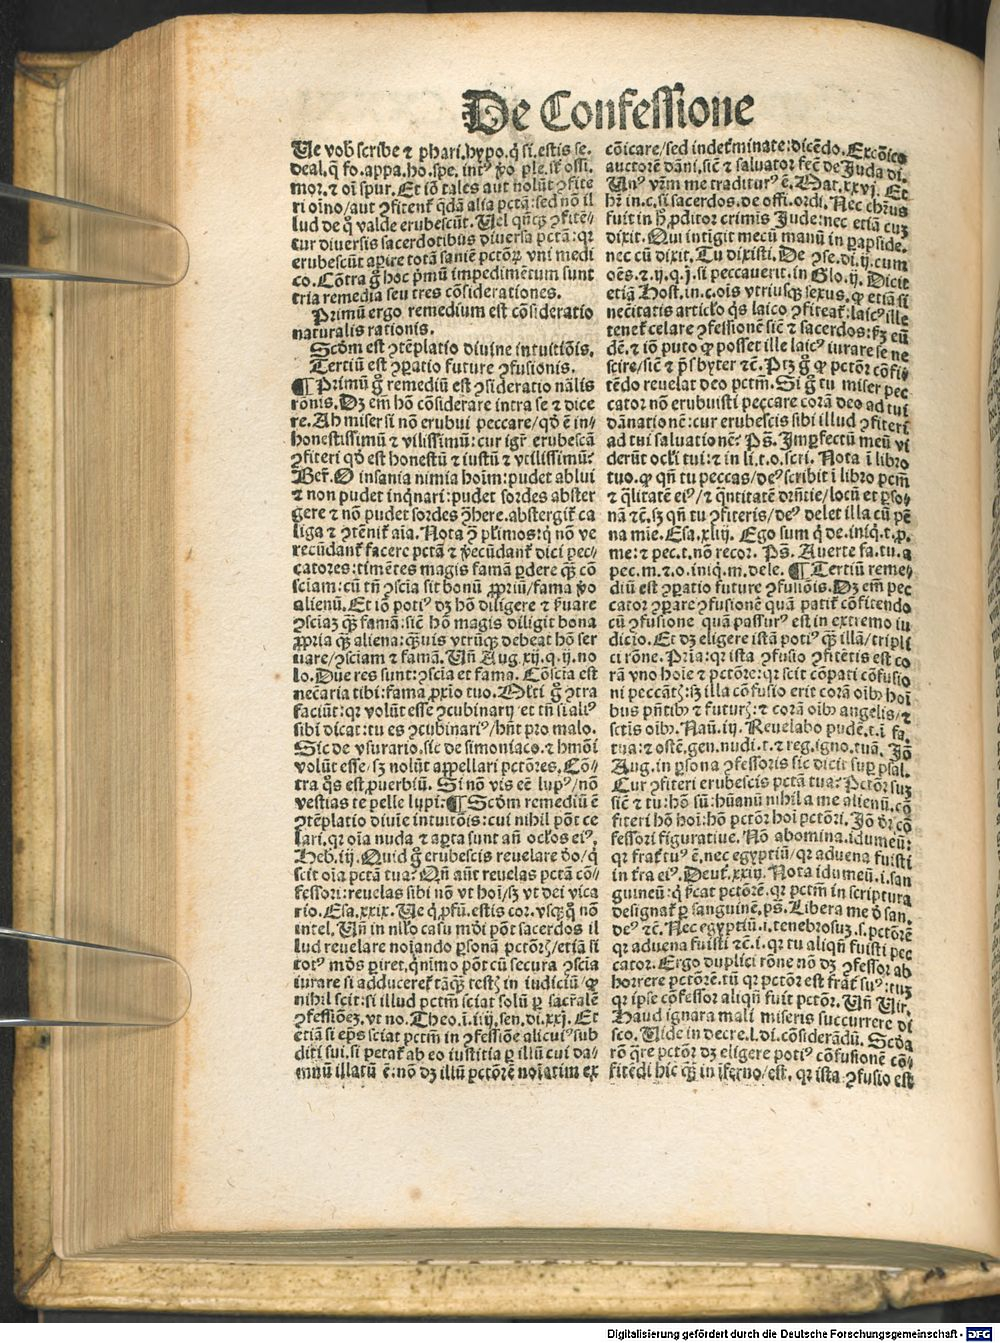 De Confessione
Ue vob̃ scribe ⁊ phari.hypo.q̃ si.estis se-
deal.q̃ fo.appa.ho.spe. intꝰ ꝟo ple.sũt ossi.
mor.⁊ oĩ spur. Et iõ tales aut nolũt ꝯfite
ri oĩno/aut ꝯfitent̃ q̃dã alia pctã: sed nõ il
lud de q̃ valde erubescũt. Uel qñqꝫ ꝯfitẽ-
tur diuersis sacerdotibus diuersa pctã: qr
erubescũt aꝑire totã saniẽ pctõꝝ vni medi
co. Cõtra g̃ hoc pͥmũ impedimẽtum sunt
tria remedia seu tres cõsiderationes.
Primũ ergo remedium est cõsideratio
naturalis rationis.
Scd̃m est ꝯtẽplatio diuine intuitiõis.
Tertiũ est ꝯꝑatio future ꝯfusionis.
¶ Primũ g̃ remediũ est ꝯsideratio nãlis
rõnis. Dꝫ em̃ hõ cõsiderare intra se ⁊ dice
re. Ah miser si nõ erubui peccare/qd̃ ẽ in-
honestissimũ ⁊ vilissimũ: cur igr̃ erubescã
ꝯfiteri qd̃ est honestũ ⁊ iustũ ⁊ vtilissimũ?
Ber̃. O insania nimia hoĩm: pudet ablui
⁊ non pudet inq̃nari: pudet sordes abster
gere ⁊ nõ pudet sordes ꝯ̃here. abstergit̃ ca
liga ⁊ ꝯtẽnit̃ aĩa. Nota ꝯ̃ pl̃imos: q̃ nõ ve
recũdant̃ facere pctã ⁊ ꝟecũdant̃ dici pec-
catores: timẽtes magis famã ꝑdere qꝫ̃ cõ
sciam: cũ tñ ꝯscia sit bonũ ꝓpriũ/fama ꝟo
alienũ. Et iõ potiꝰ dꝫ hõ diligere ⁊ ẜuare
ꝯsciaꝫ qꝫ̃ famã: sic̃ hõ magis diligit bona
ꝓpria qꝫ̃ aliena: qꝫ̃uis vtrũqꝫ debeat hõ ser
uare/ꝯsciam ⁊ famã. Uñ Aug.xij.q.ij.no
lo. Due res sunt: ꝯscia et fama. Cõscia est
necc̃aria tibi: fama ꝓxĩo tuo. Ml̃ti g̃ ꝯtra
faciũt: qr volũt esse ꝯcubinarij et tñ si aliꝰ
sibi dicat: tu es ꝯcubinariꝰ/hñt pro malo.
Sic de vsurario, sic de simoniaco.⁊ hmõi
volũt esse/sꝫ nolũt appellari pctõres. Cõ-
tra q̃s est ꝓuerbiũ. Si nõ vis eẽ lupꝰ/nõ
vestias te pelle lupi: ¶ Scd̃m remediũ ẽ
ꝯtẽplatio diuĩe intuitõis: cui nihil põt ce
lari. qr oĩa nuda ⁊ aꝑta sunt añ ocl̃os eiꝰ,
Heb.iij. Quid g̃ erubescis reuelare dõ/q̃
scit oĩa pctã tua? Qñ aũt reuelas pctã cõ-
fessori: reuelas sibi nõ vt hoĩ/sꝫ vt dei vica
rio. Esa.xxix. Ue q̃ ꝓfũ. estis cor. vsqꝫ q̃ nõ
intel. Uñ in nll̃o casu mũdi põt sacerdos il
lud reuelare noĩando ꝑsonã pctõrꝭ/etiã si
totꝰ mũdꝰ ꝑiret. q̃nimo põt cũ secura ꝯscia
iurare si adduceret̃ tãqꝫ̃ testꝭ in iudiciũ/ꝙ
nihil scit: si illud pctm̃ sciat solũ ꝑ sacr̃alẽ
ꝯfessiõeꝫ. vt no. Theo.ĩ.iiij.sen.di.xxj. Et
etiã si ep̃s sciat pctm̃ in ꝯfessiõe alicuiꝰ sub
diti sui. si petat̃ ab eo iustitia ꝑ illũ cui da-
mnũ illatũ ẽ: nõ dꝫ illũ pctõrẽ noĩatim ex
cõicare/sed indet̃minate: dicẽdo. Excõico
auctorẽ dãni. sic̃ ⁊ saluator fec̃ de Juda di.
Unꝰ vr̃m me traditurꝰ ẽ. Mat.xxvj. Et
hr̃ in.c.si sacerdos.de offi.ordi. Nec chr̃us
fuit in h̃ ꝓditor crimis Jude: nec etiã cuꝫ
dixit. Qui intĩgit mecũ manũ in ꝑapside.
nec cũ dixit. Tu dixisti. De ꝯse.di.ij.cum
oẽs. ⁊.ij.q.j.si peccauerit. in Glo.ij. Dicit
etiã Host.in.c.oĩs vtriusqꝫ sexus. ꝙ etiã si
necc̃itatis articl̃o q̃s laico ꝯfiteat̃: laicꝰ ille
tenet̃ celare ꝯfessionẽ sic̃ ⁊ sacerdos: ẜꝫ eũ
dẽ. ⁊ iõ puto ꝙ posset ille laicꝰ iurare se ne
scire/sic̃ ⁊ p̃sbyter ⁊c̃. Ptꝫ g̃ ꝙ pctõr cõfi-
tẽdo reuelat deo pctm̃. Si g̃ tu miser pec
cator nõ erubuisti peccare corã deo ad tui
dãnationẽ: cur erubescis sibi illud ꝯfiteri
ad tui saluationẽ? Ps̃. Imꝑfectũ meũ vi
derũt ocl̃i tui: ⁊ in li.t.o.scri. Nota ĩ libro
tuo. ꝙ qñ tu peccas/deꝰ scribit ĩ libro pctm̃
⁊ q̃litatẽ eiꝰ/⁊ q̃ntitatẽ dr̃ntie/locũ et ꝑso-
nã ⁊c̃. sꝫ qñ tu ꝯfiteris/deꝰ delet illa cũ pẽ
na mĩe. Esa.xliij. Ego sum q̃ de.iniq̃.t.ꝓ.
me: ⁊ pec.t.nõ recor. Ps̃. Auerte fa.tu.a
pec.m.⁊.o.iniq̃.m.dele. ¶ Tertiũ reme-
diũ est ꝯꝑatio future ꝯfusiõis. Dꝫ em̃ pec
cator ꝯꝑare ꝯfusionẽ quã patit̃ cõfitendo
cũ ꝯfusione quã passurꝰ est in extremo iu
dicio. Et dꝫ eligere istã potiꝰ qꝫ̃ illã/tripli
ci rõne. Pria: qr ista ꝯfusio ꝯfitẽtis est co
rã vno hoĩe ⁊ pctõre: qr scit cõpati cõfusio
ni peccãtꝭ: sꝫ illa cõfusio erit corã oĩbꝰ hoĩ
bus pñtibꝰ ⁊ futurꝭ: ⁊ corã oĩbꝰ angelis/⁊
sctĩs oĩbꝰ. Naũ.iij. Reuelabo pudẽ.t.ĩ fa.
tua: ⁊ ostẽ.gen.nudi.t.⁊ reg.igno.tuã. Jõ
Aug.in ꝑsona ꝯfessoris sic dicit suꝑ psal.
Cur ꝯfiteri erubescis pctã tua? Pctõr suꝫ
sic̃ ⁊ tu: hõ sũ: hũanũ nihil a me alienũ. cõ
fiteri hõ hoĩ: hõ pctõr hoĩ pctõri. Jõ dr̃ cõ
fessori figuratiue. Nõ abomina.idumeũ:
qr frat̃ tuꝰ ẽ. nec egyptiũ/qr aduena fuisti
in t̃ra eiꝰ. Deut̃.xxiij. Nota idumeũ.i.san
guineũ: q̃ ẜcat pctõrẽ. qr pctm̃ in scriptura
designat̃ ꝑ sanguinẽ. ps̃. Libera me d̃ san.
deꝰ ⁊c̃. Nec egyptiũ.i.tenebrosuꝫ.s.pctõrẽ
qr aduena fuisti ⁊c̃.i.qr tu aliqñ fuisti pec
cator. Ergo duplici rõne nõ dꝫ ꝯfessor ab
horrere pctõrẽ. tũ qr pctõr est frat̃ suꝰ: tuꝫ
qr ipse cõfessor aliqñ fuit pctõr. Uñ Uir.
Haud ignara mali miseris succurrere di
sco. Uide in decre.l.di.cõsiderãdũ. Scd̃a
rõ q̃re pctõr dꝫ eligere potiꝰ cõfusionẽ cõ-
fitẽdi hic qꝫ̃ in ĩferno/est. qr ista ꝯfusio est
Digitalisierung gefördert durch die Deutsche Forschungsgemeinschaft - DFG